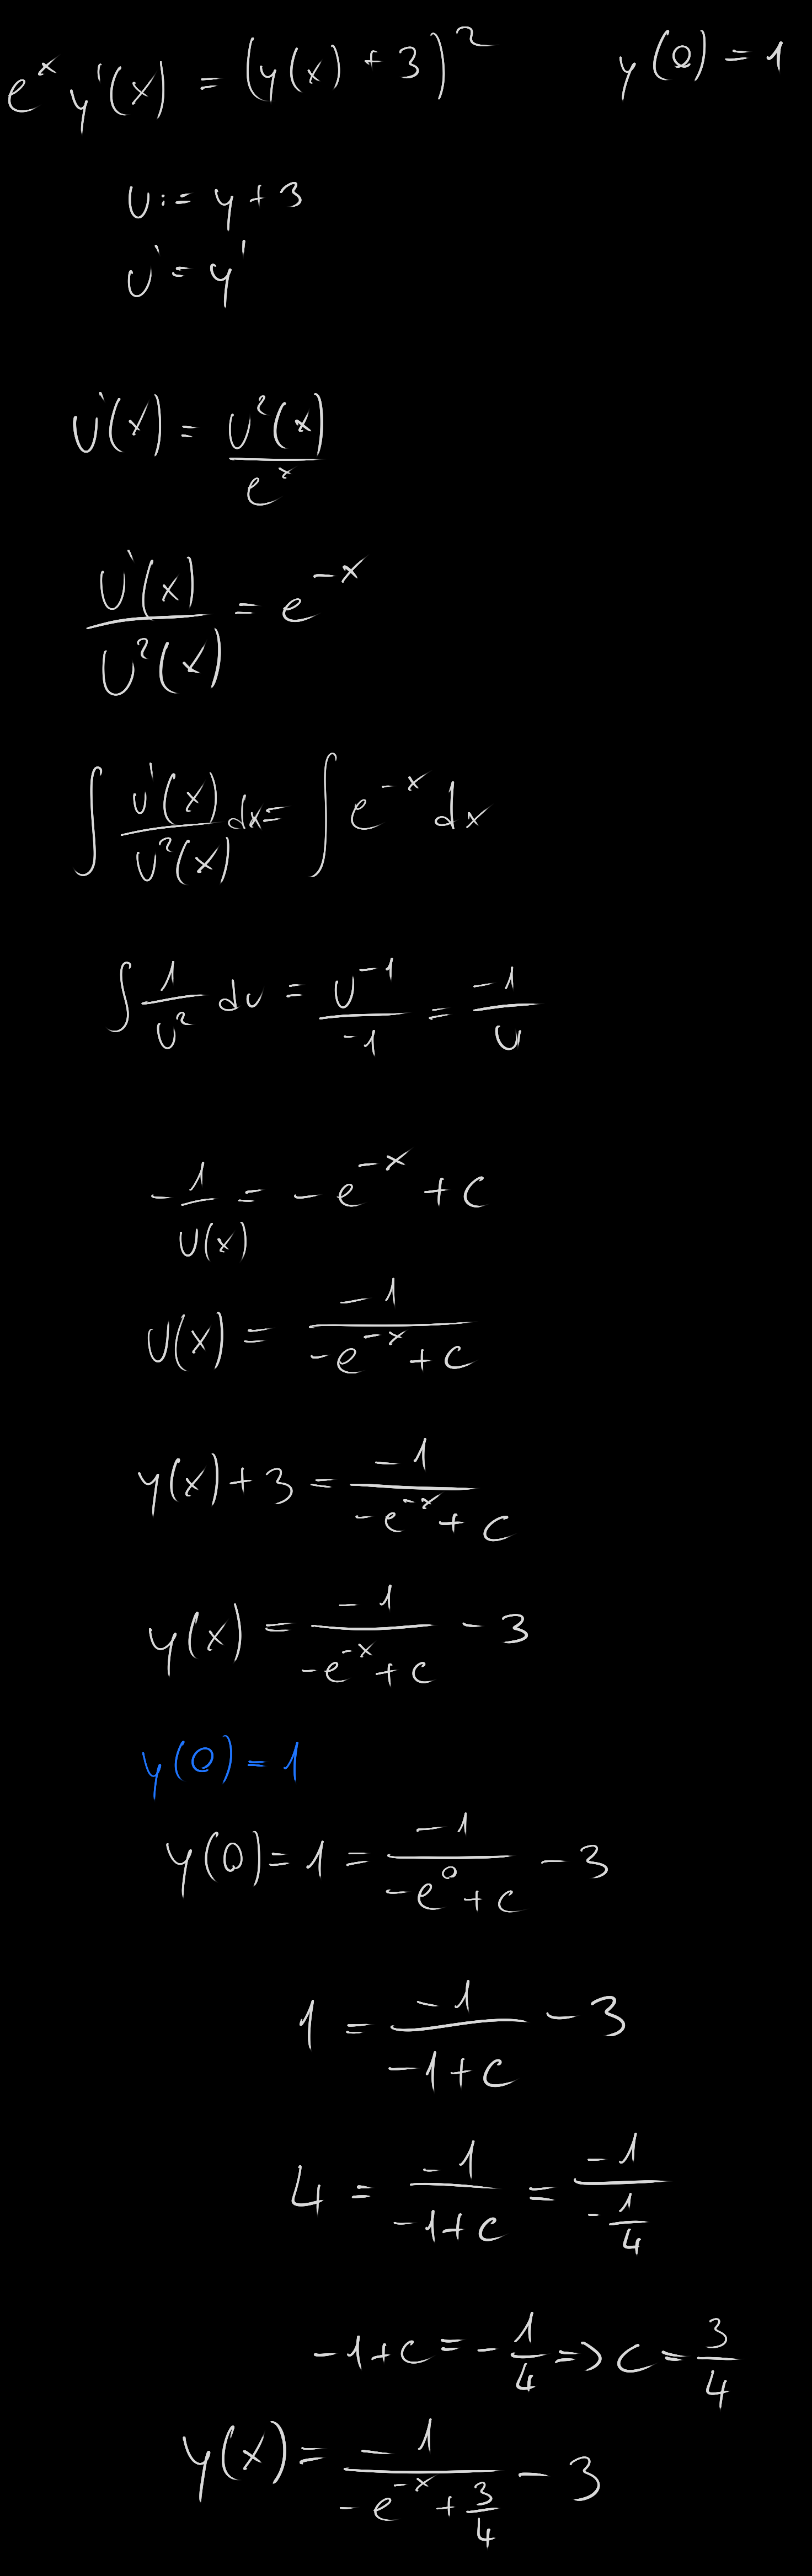 e^x y'(x) = (y(x) + 3)^2    y(0) = 1
u := y + 3
u' = y'
u'(x) = u^2(x) / e^x
u'(x) / u^2(x) = e^{-x}
∫ u'(x) / u^2(x) dx = ∫ e^{-x} dx
∫ 1/u^2 du = u^{-1} / -1 = -1 / u
- 1 / u(x) = - e^{-x} + c
u(x) = -1 / (-e^{-x} + c)
y(x) + 3 = -1 / (-e^{-x} + c)
y(x) = -1 / (-e^{-x} + c) - 3
y(0) = 1
y(0) = 1 = -1 / (-e^0 + c) - 3
1 = -1 / (-1 + c) - 3
4 = -1 / (-1 + c) = -1 / (-1/4)
-1 + c = - 1/4 => c = 3/4
y(x) = -1 / (-e^{-x} + 3/4) - 3